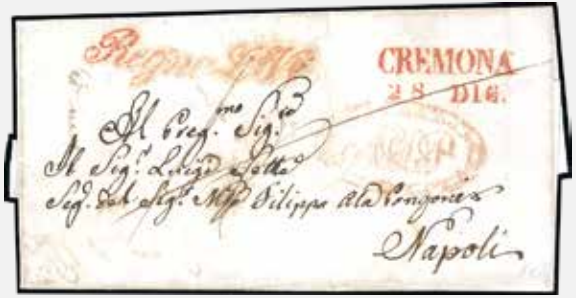 Regno L.V.
CREMONA
28 DIC.
Al Preg.mo Sig.re
Il Sig.r Luigi
Seg. del Sig.r M.se Filippo Ala Ponzoni
Napoli